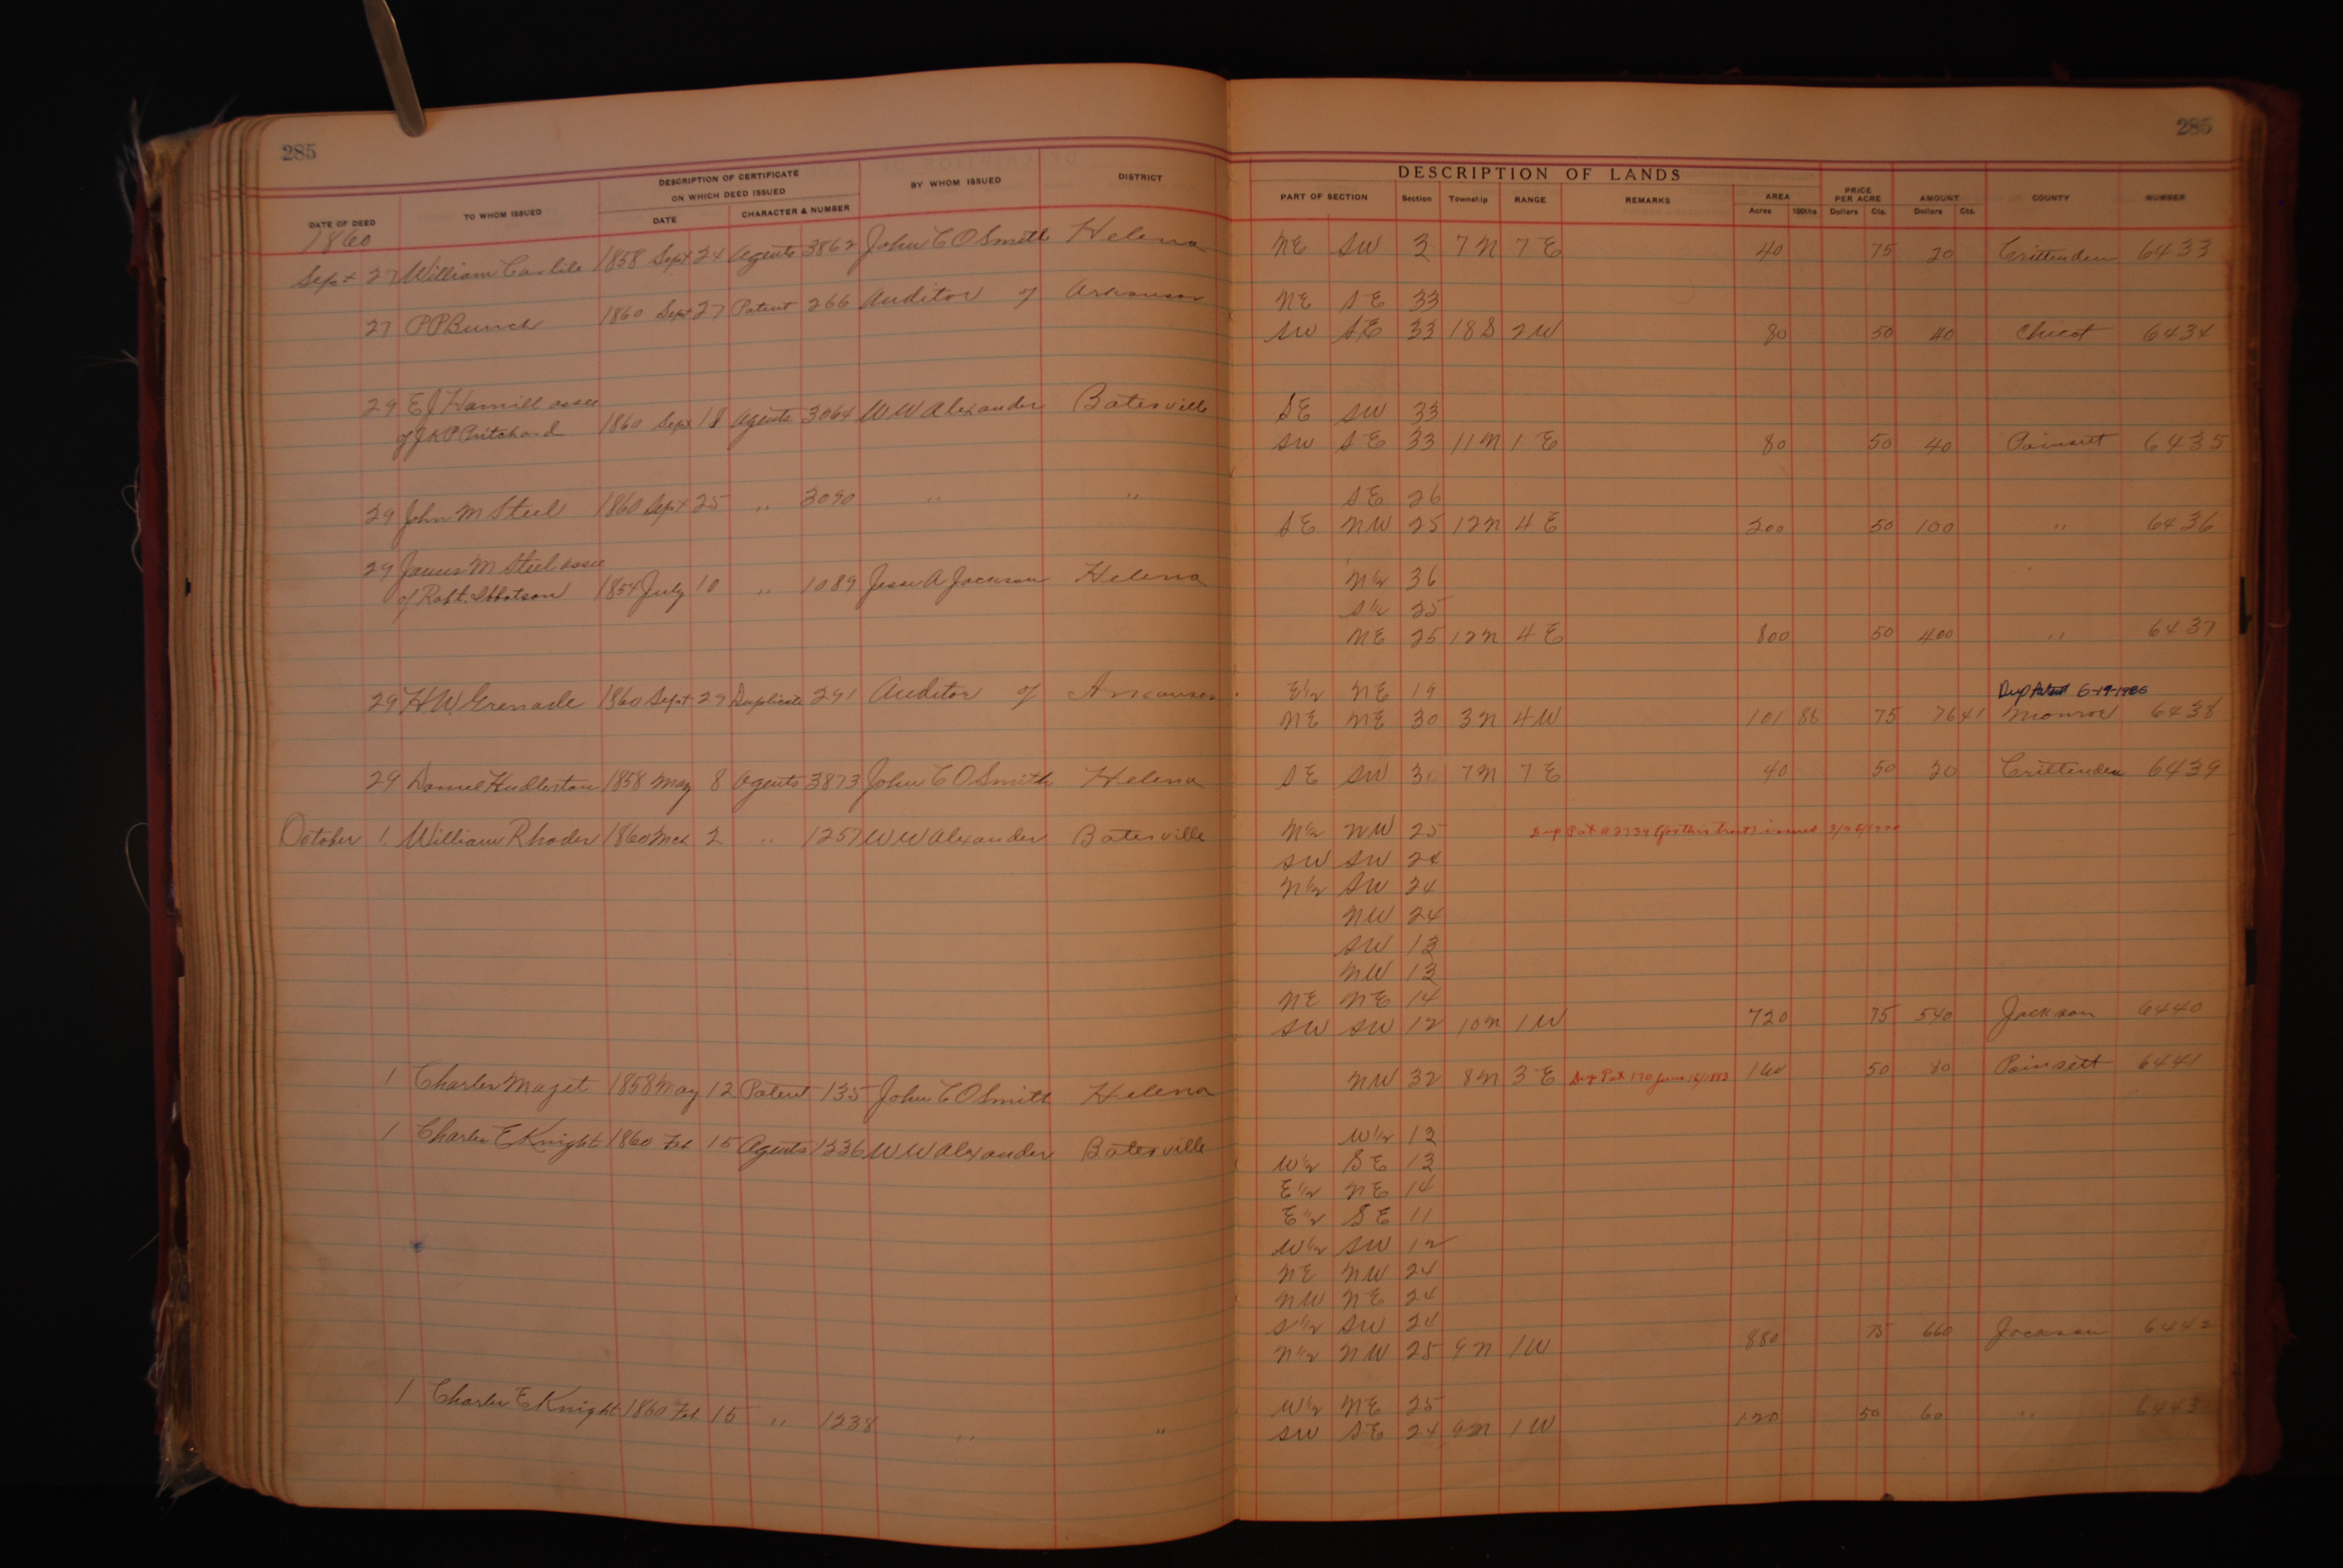 285
285
DESCRIPTION OF CERTIFICATE ON WHICH DEED ISSUED
DESCRIPTION OF LANDS
DATE OF DEED TO WHOM ISSUED DATE CHARACTER & NUMBER BY WHOM ISSUED DISTRICT PART OF SECTION Section Township RANGE REMARKS AREA Acres 100ths PRICE PER ACRE Dollars Cts. AMOUNT Dollars Cts. COUNTY NUMBER
1860
Sept 27 William Carlile 1858 Sept 24 Agents 3862 John C O Smith Helena NE SW 3 7N 7E 40 75 30 Crittenden 6433
27 P P Bunch 1860 Sept 27 Patent 266 Auditor of Arkansas NE SE 33
SW SE 33 18S 2W 80 50 40 Chicot 6434
29 E J Hamill assee
of J & P Pritchard 1860 Sept 18 Agents 3064 W W Alexander Batesville SE SW 33
SW SE 33 11N 1E 80 50 40 Poinsett 6435
29 John M Steel 1860 Sept 25 " 3090 " " SE 26
SE NW 25 12N 4E 200 50 100 " 6436
29 James M Steel assee
of Robt. Ibbotson 1854 July 10 " 1089 Jesse A Jackson Helena N½ 36
S½ 25
NE 25 12N 4E 800 50 400 " 6437
29 H W Grenade 1860 Sept 29 Duplicate 291 Auditor of Arkansas E½ NE 19
Dup Patent
NE NE 30 3N 4W 101 88 75 76 41 Monroe 6438
29 Daniel Hudleston 1858 May 8 Agents 3873 John C O Smith Helena SE SW 31 7N 7E 40 50 20 Crittenden 6439
October 1 William Rhodes 1860 Mch 2 " 1257 W W Alexander Batesville N½ NW 25 Dup Pat # 2739 (for this tract) issued
SW SW 24
N½ SW 24
NW 24
SW 13
NW 13
NE NE 14
SW SW 12 10N 1W 720 75 540 Jackson 6440
1 Charles Mazet 1858 May 12 Patent 135 John C O Smith Helena NW 32 8N 3E Dup Pat 170 June 1883 160 50 80 Poinsett 6441
1 Charles E Knight 1860 Feb 15 Agents 1236 W W Alexander Batesville W½ 13
W½ SE 13
E½ NE 14
E½ SE 11
W½ SW 12
NE NW 24
NW NE 24
S½ SW 24
N½ NW 25 9N 1W 880 75 660 Jackson 6442
1 Charles E Knight 1860 Feb 15 " 1238 " " W½ NE 25
SW SE 24 9N 1W 120 50 60 " 6443